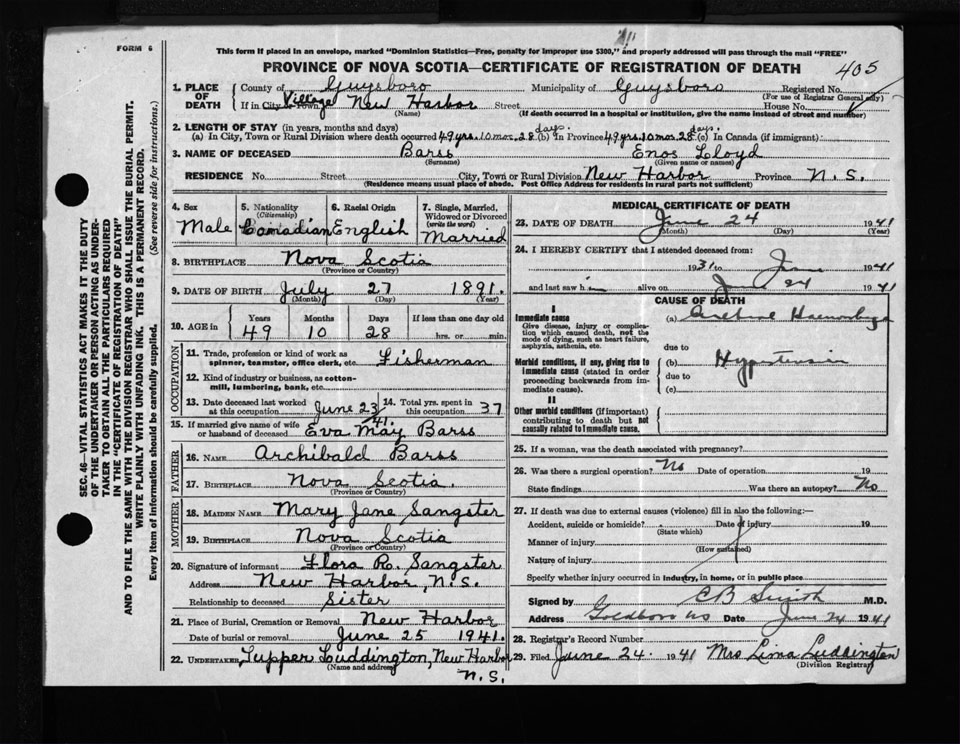 FORM 6
This form if placed in an envelope, marked "Dominion Statistics—Free, penalty for improper use $300," and properly addressed will pass through the mail "FREE"
PROVINCE OF NOVA SCOTIA—CERTIFICATE OF REGISTRATION OF DEATH
405
1. PLACE OF DEATH
County of Guysboro Municipality of Guysboro Registered No.
(For use of Registrar General only)
If in City or Town Village New Harbor Street House No.
(Name) (If death occurred in a hospital or institution, give the name instead of street and number)
2. LENGTH OF STAY (in years, months and days)
(a) In City, Town or Rural Division where death occurred 49 yrs. 10 mos. 28 days. (b) In Province 49 yrs. 10 mos. 28 days. (c) In Canada (if immigrant)
3. NAME OF DECEASED Barss Enos Lloyd
(Surname) (Given name or names)
RESIDENCE No. Street City, Town or Rural Division New Harbor Province N.S.
(Residence means usual place of abode. Post Office Address for residents in rural parts not sufficient)
4. Sex Male
5. Nationality (Citizenship) Canadian
6. Racial Origin English
7. Single, Married, Widowed or Divorced (write the word) Married
8. BIRTHPLACE Nova Scotia
(Province or Country)
9. DATE OF BIRTH July 27 1891.
(Month) (Day) (Year)
10. AGE in Years Months Days If less than one day old
49 10 28 hrs. or min.
OCCUPATION
11. Trade, profession or kind of work as spinner, teamster, office clerk, etc. Fisherman
12. Kind of industry or business, as cotton-mill, lumbering, bank, etc.
13. Date deceased last worked at this occupation June 23/41.
14. Total yrs. spent in this occupation 37
15. If married give name of wife or husband of deceased Eva May Barss
FATHER
16. NAME Archibald Barss
17. BIRTHPLACE Nova Scotia.
(Province or Country)
MOTHER
18. MAIDEN NAME Mary Jane Sangster
19. BIRTHPLACE Nova Scotia
(Province or Country)
20. Signature of informant Flora R. Sangster
Address New Harbor, N.S.
Relationship to deceased Sister
21. Place of Burial, Cremation or Removal New Harbor
Date of burial or removal June 25 1941.
22. UNDERTAKER Tupper Luddington, New Harbor
(Name and address)
N.S.
MEDICAL CERTIFICATE OF DEATH
23. DATE OF DEATH June 24 1941
(Month) (Day) (Year)
24. I HEREBY CERTIFY that I attended deceased from:
1931 to June 1941
and last saw him alive on June 24 1941
CAUSE OF DEATH
I
Immediate cause
Give disease, injury or complication which caused death, not the mode of dying, such as heart failure, asphyxia, asthenia, etc.
(a) Cerebral Haemorrhage
due to
Morbid conditions, if any, giving rise to immediate cause (stated in order proceeding backwards from immediate cause).
(b) Hypertension
due to
(c)
II
Other morbid conditions (if important) contributing to death but not causally related to immediate cause.
25. If a woman, was the death associated with pregnancy?
26. Was there a surgical operation? No Date of operation 19
State findings Was there an autopsy? No
27. If death was due to external causes (violence) fill in also the following:—
Accident, suicide or homicide? Date of injury 19
(State which)
Manner of injury
(How sustained)
Nature of injury
Specify whether injury occurred in industry, in home, or in public place
Signed by CB Smith M.D.
Address Goldboro NS Date June 24 1941
28. Registrar's Record Number
29. Filed June 24. 1941 Mrs Lima Luddington
(Division Registrar)
SEC. 46—VITAL STATISTICS ACT MAKES IT THE DUTY
OF THE UNDERTAKER OR PERSON ACTING AS UNDER-
TAKER TO OBTAIN ALL THE PARTICULARS REQUIRED
IN THE "CERTIFICATE OF REGISTRATION OF DEATH"
AND TO FILE THE SAME WITH THE DIVISION REGISTRAR WHO SHALL ISSUE THE BURIAL PERMIT.
WRITE PLAINLY WITH UNFADING INK. THIS IS A PERMANENT RECORD.
Every item of information should be carefully supplied. (See reverse side for instructions.)